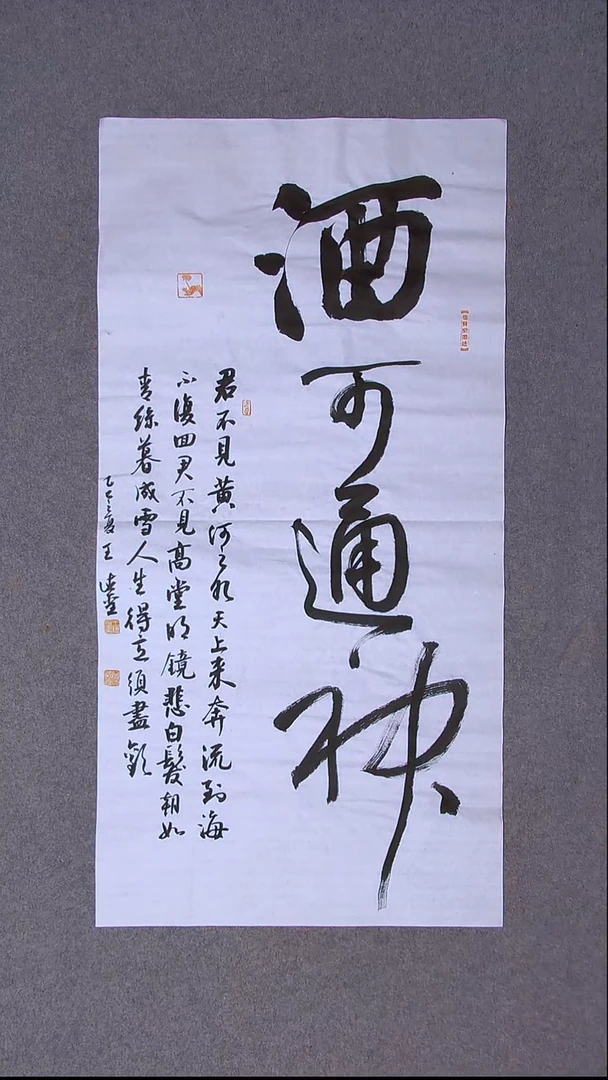 酒可通神
君不见黄河之水天上来奔流到海
不復回君不见高堂明镜悲白髮朝如
青絲暮成雪人生得意须盡歡
乙巳夏王